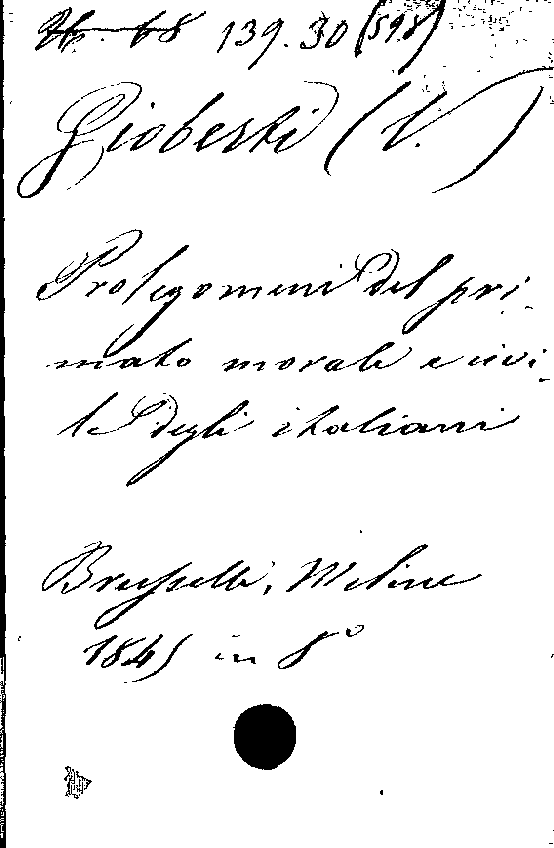 139.30 (598)
Gioberti (V.)
Prolegomeni del pri-
mato morale e civi-
le degli italiani
Brusselle, Meline
1845 in 8°